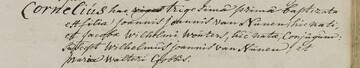 Cornelius hac trigesima prima Baptizata
est filia Joannis Joannis van Nunen, hic nati,
et Jacoba Wilhelmi Wouters, hic nata, Conjugum.
suscept Wilhelmus Joannis van Nunen, et
maria Walteri